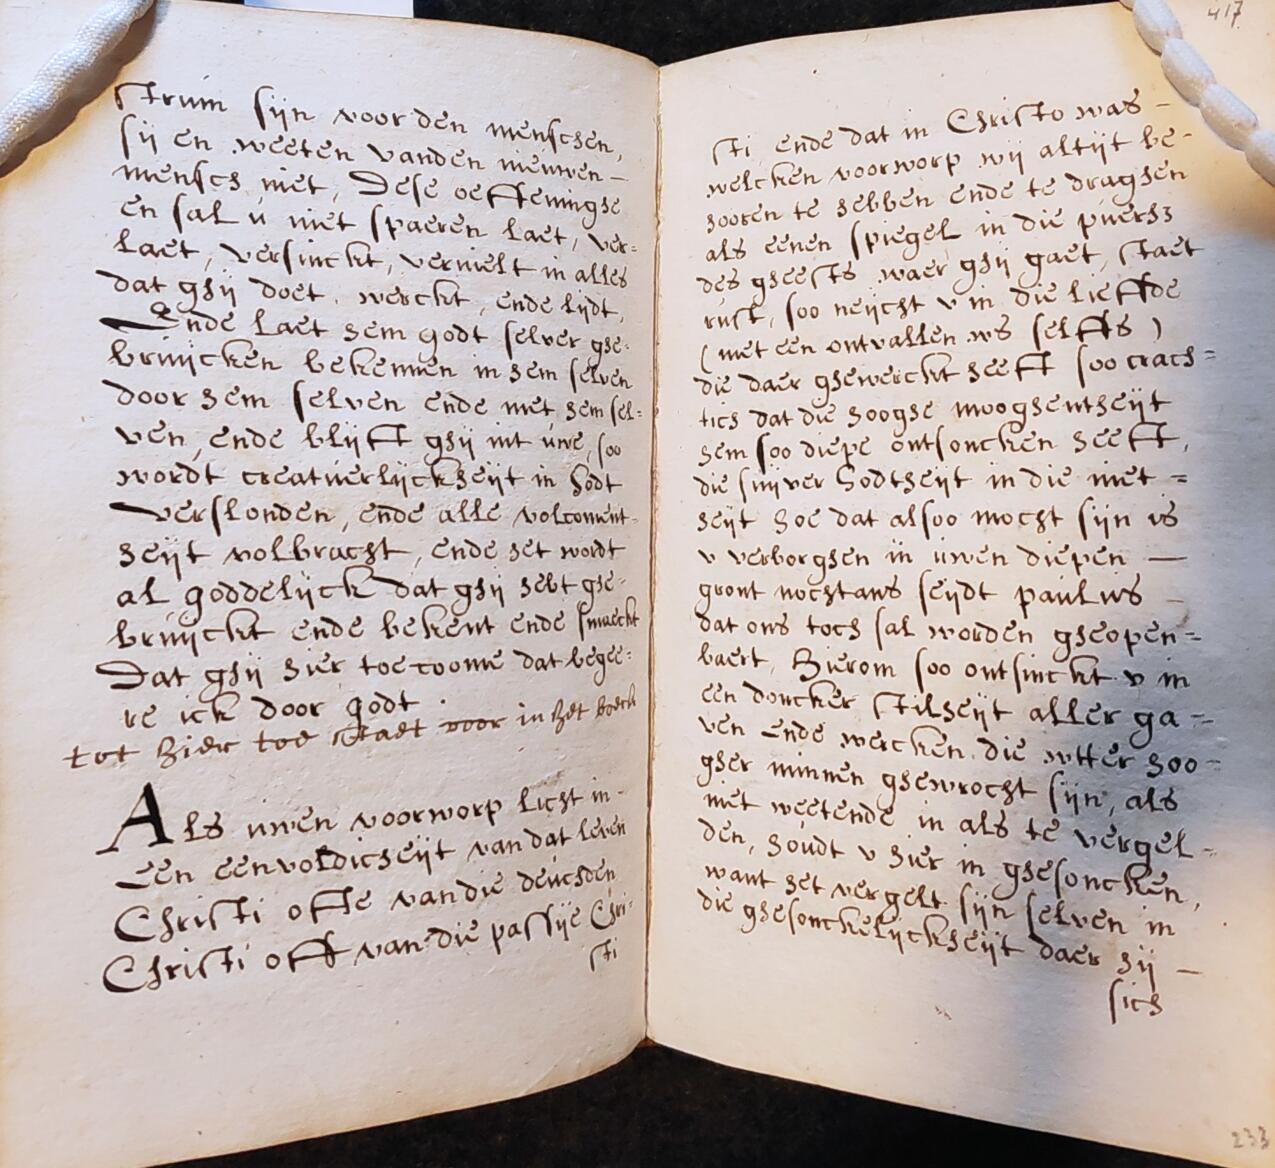 strum sijn voor den menschen,
sij en weeten vanden nieuwen –
mensch niet, Dese oeffeninghe
en sal u niet spaeren laet, ver=
laet, versinckt, vernielt in alles
dat ghij doet, werckt, ende lijdt,
Ende laet hem godt selver ghe=
bruijcken bekennen in hem selven
door hem selven ende met hem sel=
ven, ende blijft ghij int uwe, soo
wordt creatuerlijckheijt in Godt
verslonden, ende alle volcoment-
heijt volbracht, ende het wordt
al goddelijck dat ghij hebt ghe-
bruijckt ende bekent ende smaeckt
Dat ghij hier toe coome dat begee=
re ick door godt
tot hier toe staet voor in het boeck
Als uwen voorworp licht in-
een eenvoldicheijt van dat leven
Christi ofte van die deuchden
Christi off van die passije Chri-
sti
417
sti, ende dat in Christo was –
welcken voorworp wij altijt be-
hooren te hebben ende te draghen
als eenen spiegel in die puerh3
des gheests waer ghij gaet, staet
rust, soo neijcht v in die lieffde
(met een ontvallen ws selffs)
die daer ghewerckt heeft soo crach=
tich dat die hooghe mooghentheijt
hem soo diepe ontsoncken heeft,
die suijver Godtheijt in die niet =
heijt hoe dat alsoo mocht sijn is
v verborghen in uwen diepen —
gront nochtans seijdt paulus –
dat ons toch sal worden gheopen=
baert, Hierom soo ontsinckt v in
een doncker stilheijt aller ga -
ven ende wercken die wtter hoo-
gher minnen ghewrocht sijn, als
niet weetende in als te vergel-
den, houdt v hier in ghesoncken,
want het vergelt sijn selven in
die ghesonckelijckheijt daer hij –
sich
233